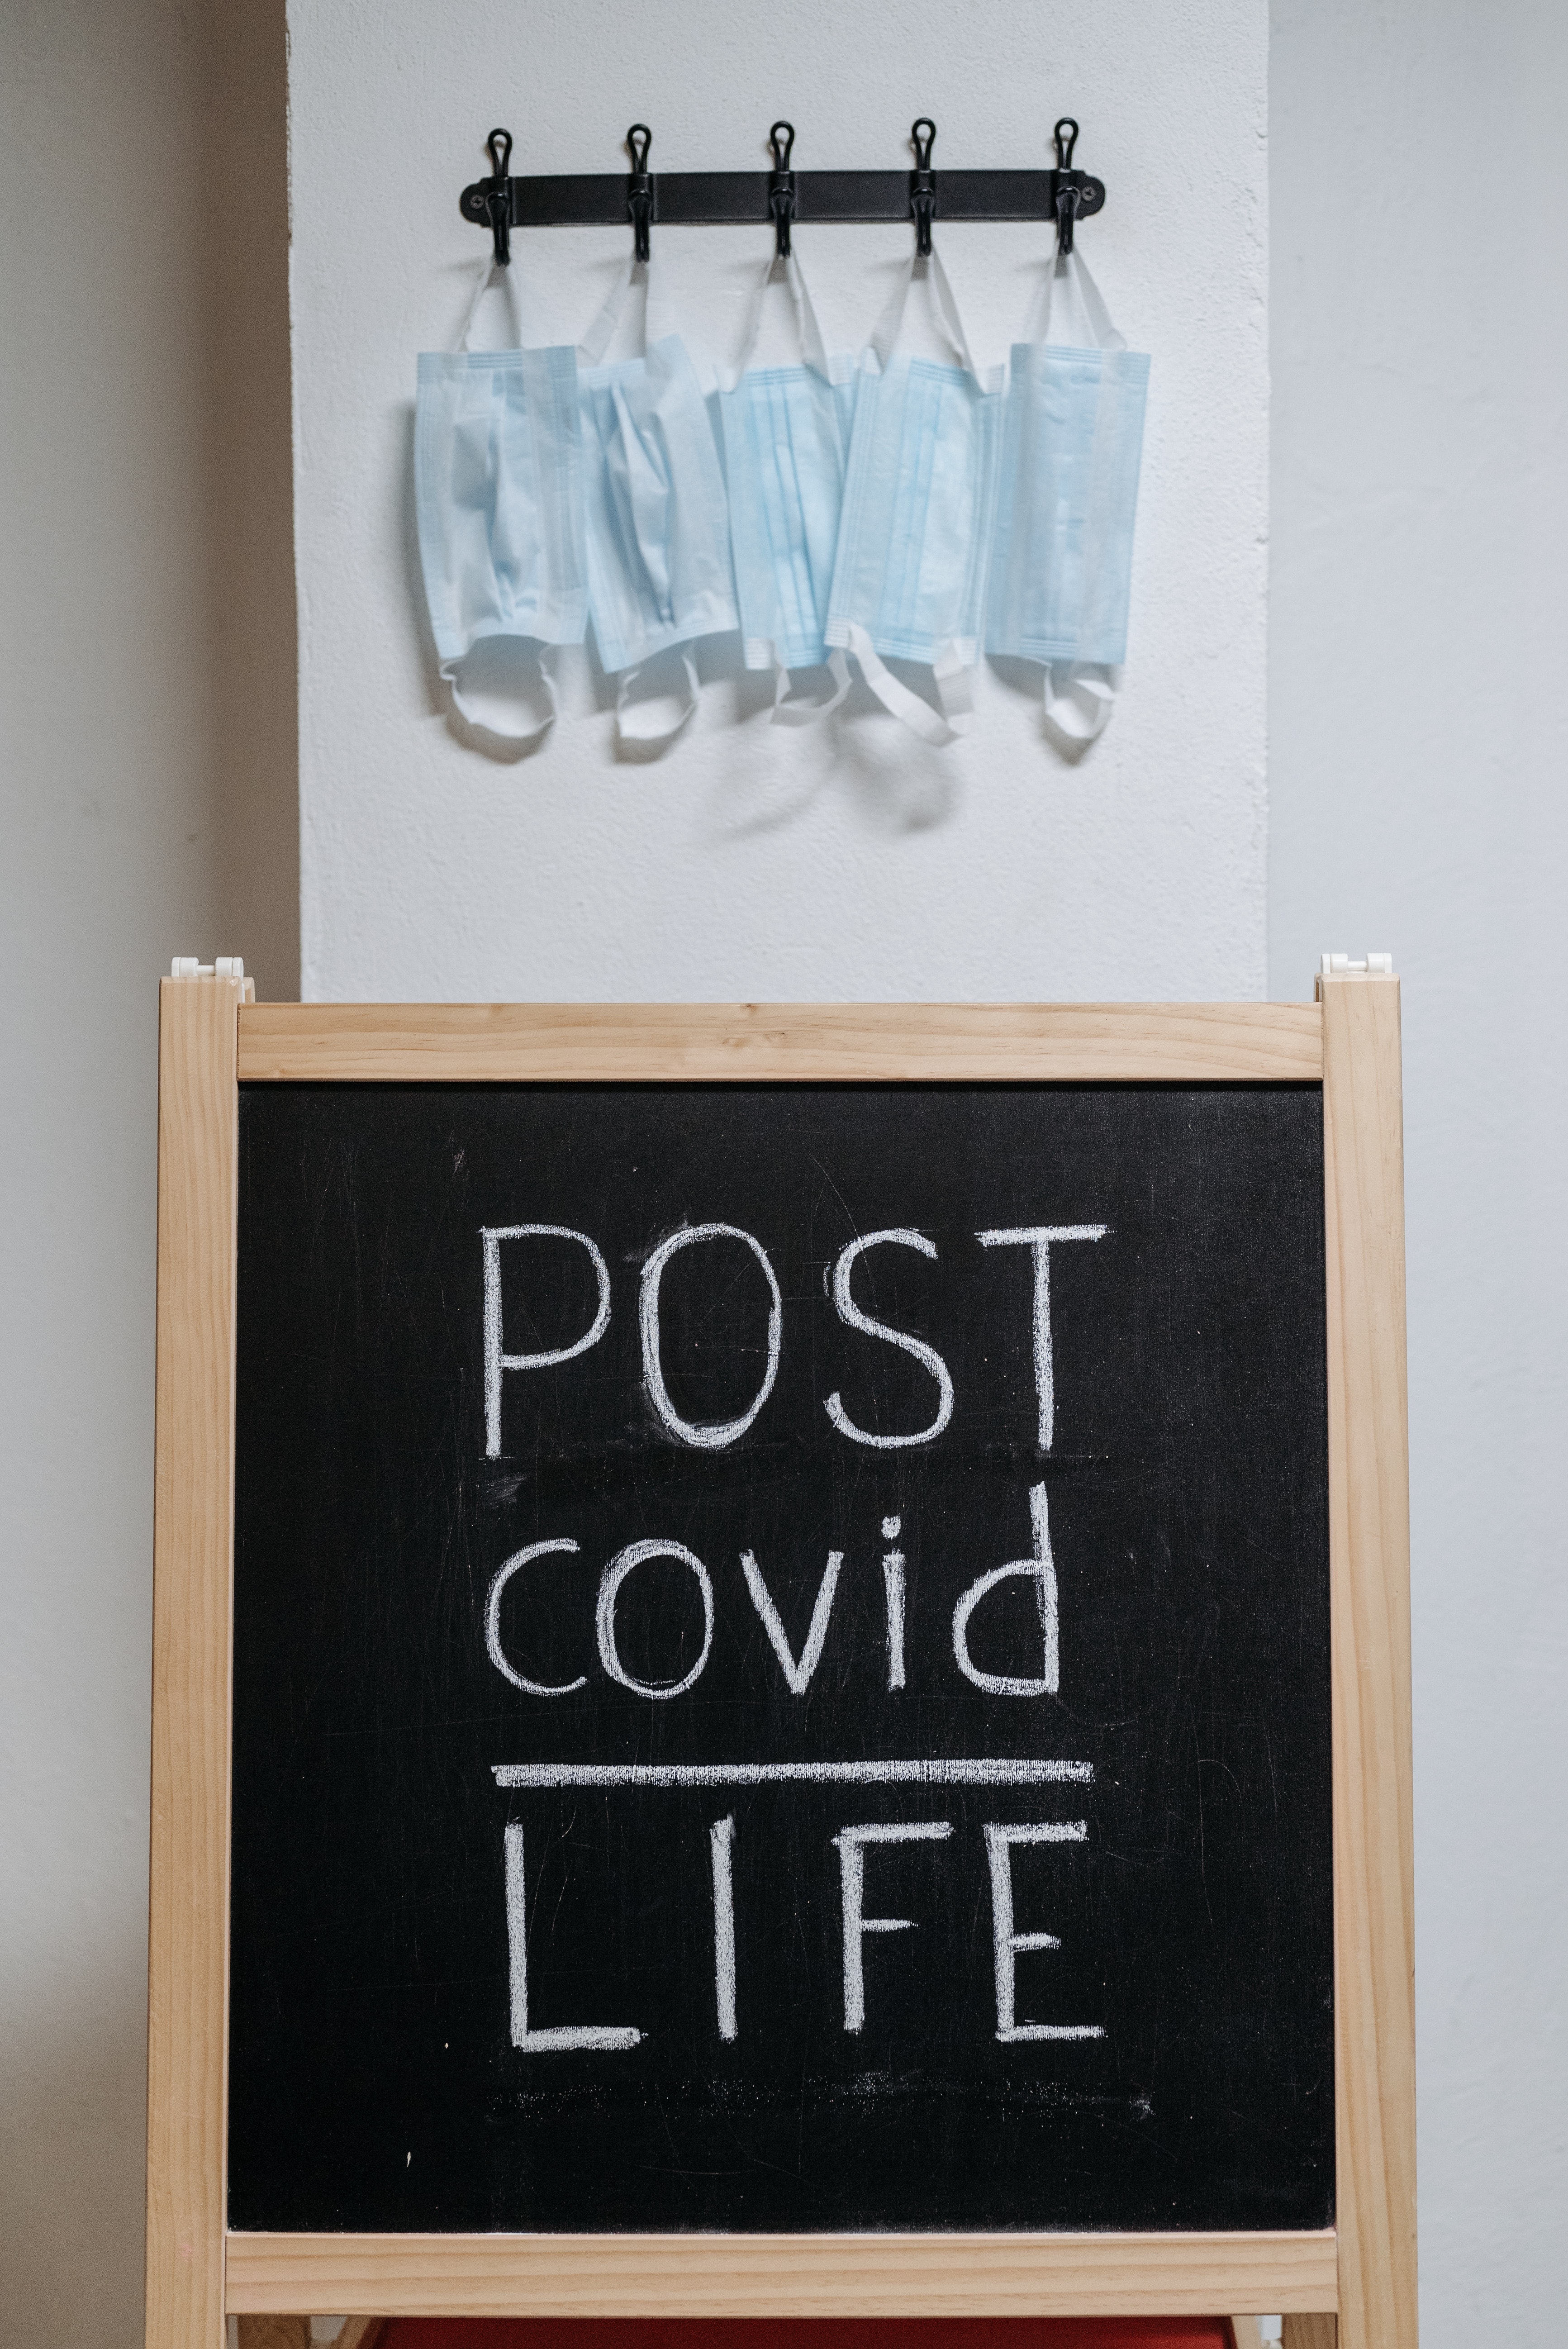 POST
covid
LIFE